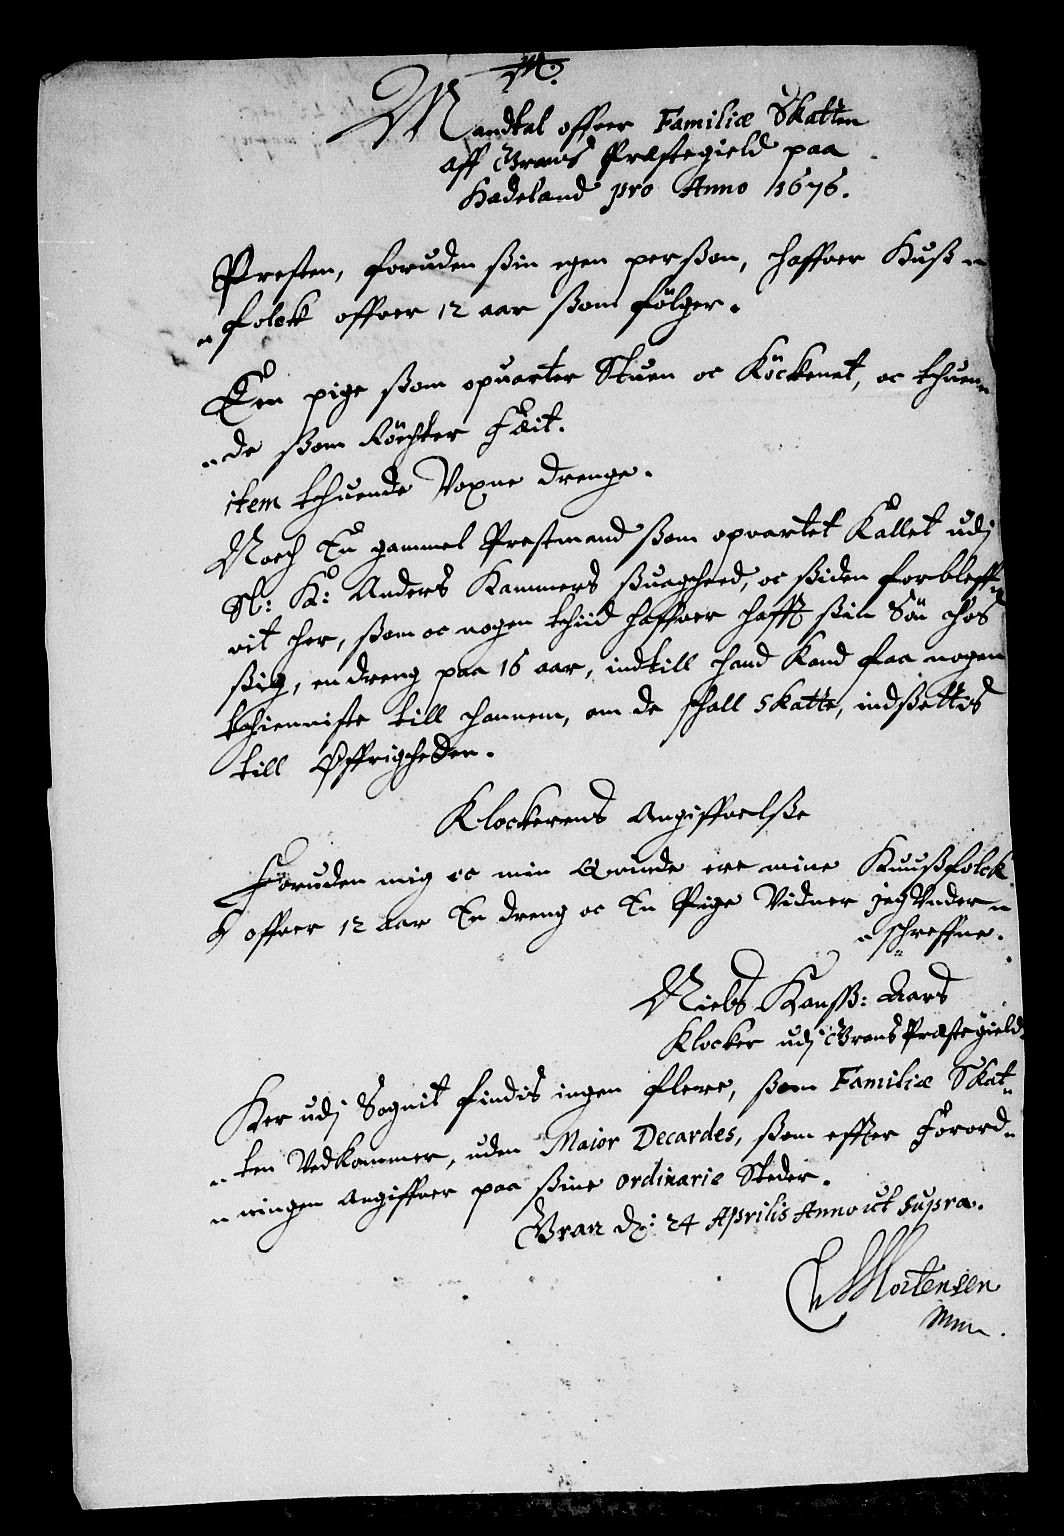 Mandtal offuer Familiæ Skatten
aff Grans Præstegield paa
Hadeland pro Anno 1676.
Presten, foruden ßin egen perßon, haffuer Huß„
„folck offuer 12 aar ßom fölger.
Een pige ßom opuarter Stuen oc Köckenet, oc thuen„
„de ßom Röchter Fæit.
item thuende Voxne drenge.
Noch En gammel Prestmand ßom opvartet Kallet udj
Sl: H: Anders Hammers ßuagheed, oc ßiden forbleff„
vit her, ßom oc nogen thiid haffuer hafft ßin Sön hos
ßig, en dreng paa 16 aar, indtill hand kand faa nogen
thienniste till hannem, om de schall Skatte, indßettis
till Øffrigheden.
Klockerens Angiffuelße
Foruden mig oc min Quinde ere mine Huußfolck
offuer 12 aar En dreng oc En Pige Vidner jeg Vnder„
„schreffne.
Niels Hanß: Aars
Klocker udj Grans Præstegield.
Her udj Sognit findis ingen flere, ßom Familiæ Skat„
„ten Vedkommer, uden Maior Decardes, ßom effter Forord„
„ningen Angiffuer paa ßine ordinarie Steder.
Gran d: 24 Aprilis Anno ut supra.
Ch Mortensen
mm.